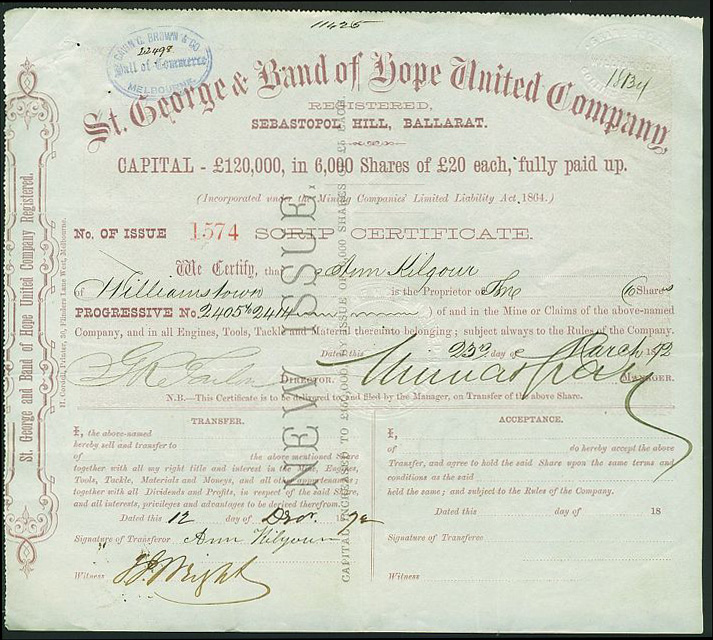 11425
CONN G. BROWN & CO
22498
Hall of Commerce
MELBOURNE
18134
St. George & Band of Hope United Company
REGISTERED,
SEBASTOPOL HILL, BALLARAT.
CAPITAL - £120,000, in 6,000 Shares of £20 each, fully paid up.
(Incorporated under the Mining Companies' Limited Liability Act, 1864.)
No. OF ISSUE 1574 SCRIP CERTIFICATE.
We Certify, that Ann Kilgour
of Williamstown is the Proprietor of Share
PROGRESSIVE No. 2405 to 2414 ) of and in the Mine or Claims of the above-named
Company, and in all Engines, Tools, Tackle and Material thereunto belonging; subject always to the Rules of the Company.
Dated this 23rd day of March 1872
DIRECTOR. MANAGER.
N.B.—This Certificate is to be delivered to, and filed by the Manager, on Transfer of the above Share.
TRANSFER.
I, the above-named
hereby sell and transfer to
of the above mentioned Share
together with all my right title and interest in the Mine, Engines,
Tools, Tackle, Materials and Moneys, and all other appurtenances;
together with all Dividends and Profits, in respect of the said Share,
and all interests, privileges and advantages to be derived therefrom.
Dated this 12 day of Decr. 1872
Signature of Transferor Ann Kilgour
Witness Wright
ACCEPTANCE.
I,
of do hereby accept the above
Transfer, and agree to hold the said Share upon the same terms and
conditions as the said
held the same; and subject to the Rules of the Company.
Dated this day of 18
Signature of Transferee
Witness
St. George and Band of Hope United Company Registered.
Printer, 50, Flinders Lane West, Melbourne.
NEW ISSUE.
CAPITAL INCREASED TO BY ISSUE OF SHARES OF £5 EACH.